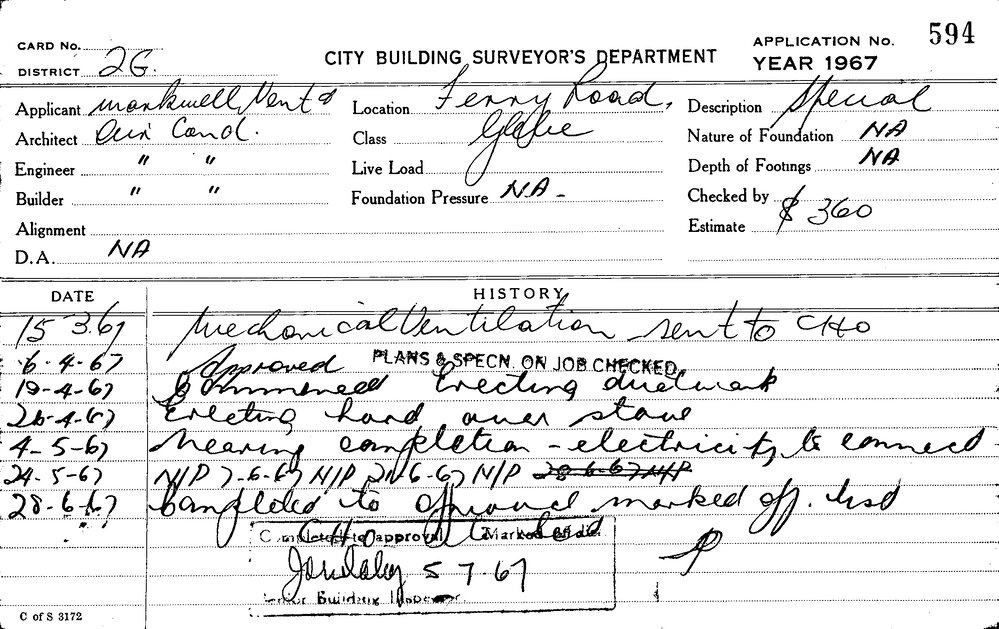 CARD No.
594
CITY BUILDING SURVEYOR'S DEPARTMENT
APPLICATION No.
YEAR 1967
DISTRICT 2G.
Applicant Markwell Vent &
Location Ferry Road,
Description Special
Architect Air Cond.
Class Glebe
Nature of Foundation NA
Engineer " "
Live Load
Depth of Footings NA
Builder " "
Foundation Pressure NA -
Checked by
Estimate $ 360
Alignment
D.A. NA
DATE HISTORY
15 3.67 Mechanical Ventilation sent to CHO
6-4-67 Approved PLANS & SPECN. ON JOB CHECKED
19-4-67 Commenced Erecting ductwork
26-4-67 Erecting hood over stove
4-5-67 Nearing completion - electricity to connect
24-5-67 N/P 7-6-67 N/P 21-6-67 N/P 28-6-67 N/P
28-6-67 Completed to approval marked off.
CHO
Completed to approval Marked off
5 7.67
Senior Building Inspector
C of S 3172